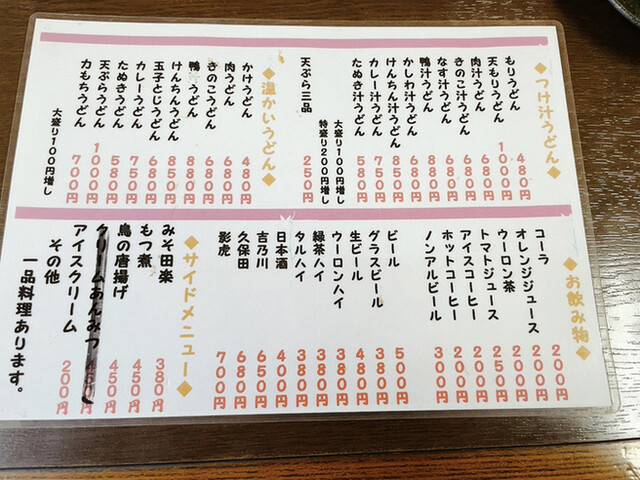 ◆つけ汁うどん◆
もりうどん 480円
天もりうどん 1000円
肉汁うどん 680円
きのこ汁うどん 680円
なす汁うどん 680円
鴨汁うどん 880円
かしわ汁うどん 680円
けんちん汁うどん 850円
カレー汁うどん 750円
たぬき汁うどん 580円
大盛り100円増し
特盛り200円増し
天ぷら三品 250円
◆温かいうどん◆
かけうどん 480円
肉うどん 680円
きのこうどん 680円
鴨汁うどん 880円
けんちんうどん 850円
玉子とじうどん 680円
カレーうどん 750円
たぬきうどん 580円
天ぷらうどん 1000円
力もちうどん 700円
大盛り100円増し
◆お飲み物◆
コーラ 200円
オレンジジュース 200円
ウーロン茶 200円
トマトジュース 250円
アイスコーヒー 200円
ホットコーヒー 200円
ノンアルビール 300円
ビール 500円
グラスビール 380円
生ビール 480円
ウーロンハイ 380円
緑茶ハイ 380円
タルハイ 380円
日本酒 400円
吉乃川 650円
久保田 680円
影虎 700円
◆サイドメニュー◆
みそ田楽 380円
もつ煮 450円
鳥の唐揚げ 450円
クリームあんみつ 450円
アイスクリーム 200円
その他
一品料理あります。